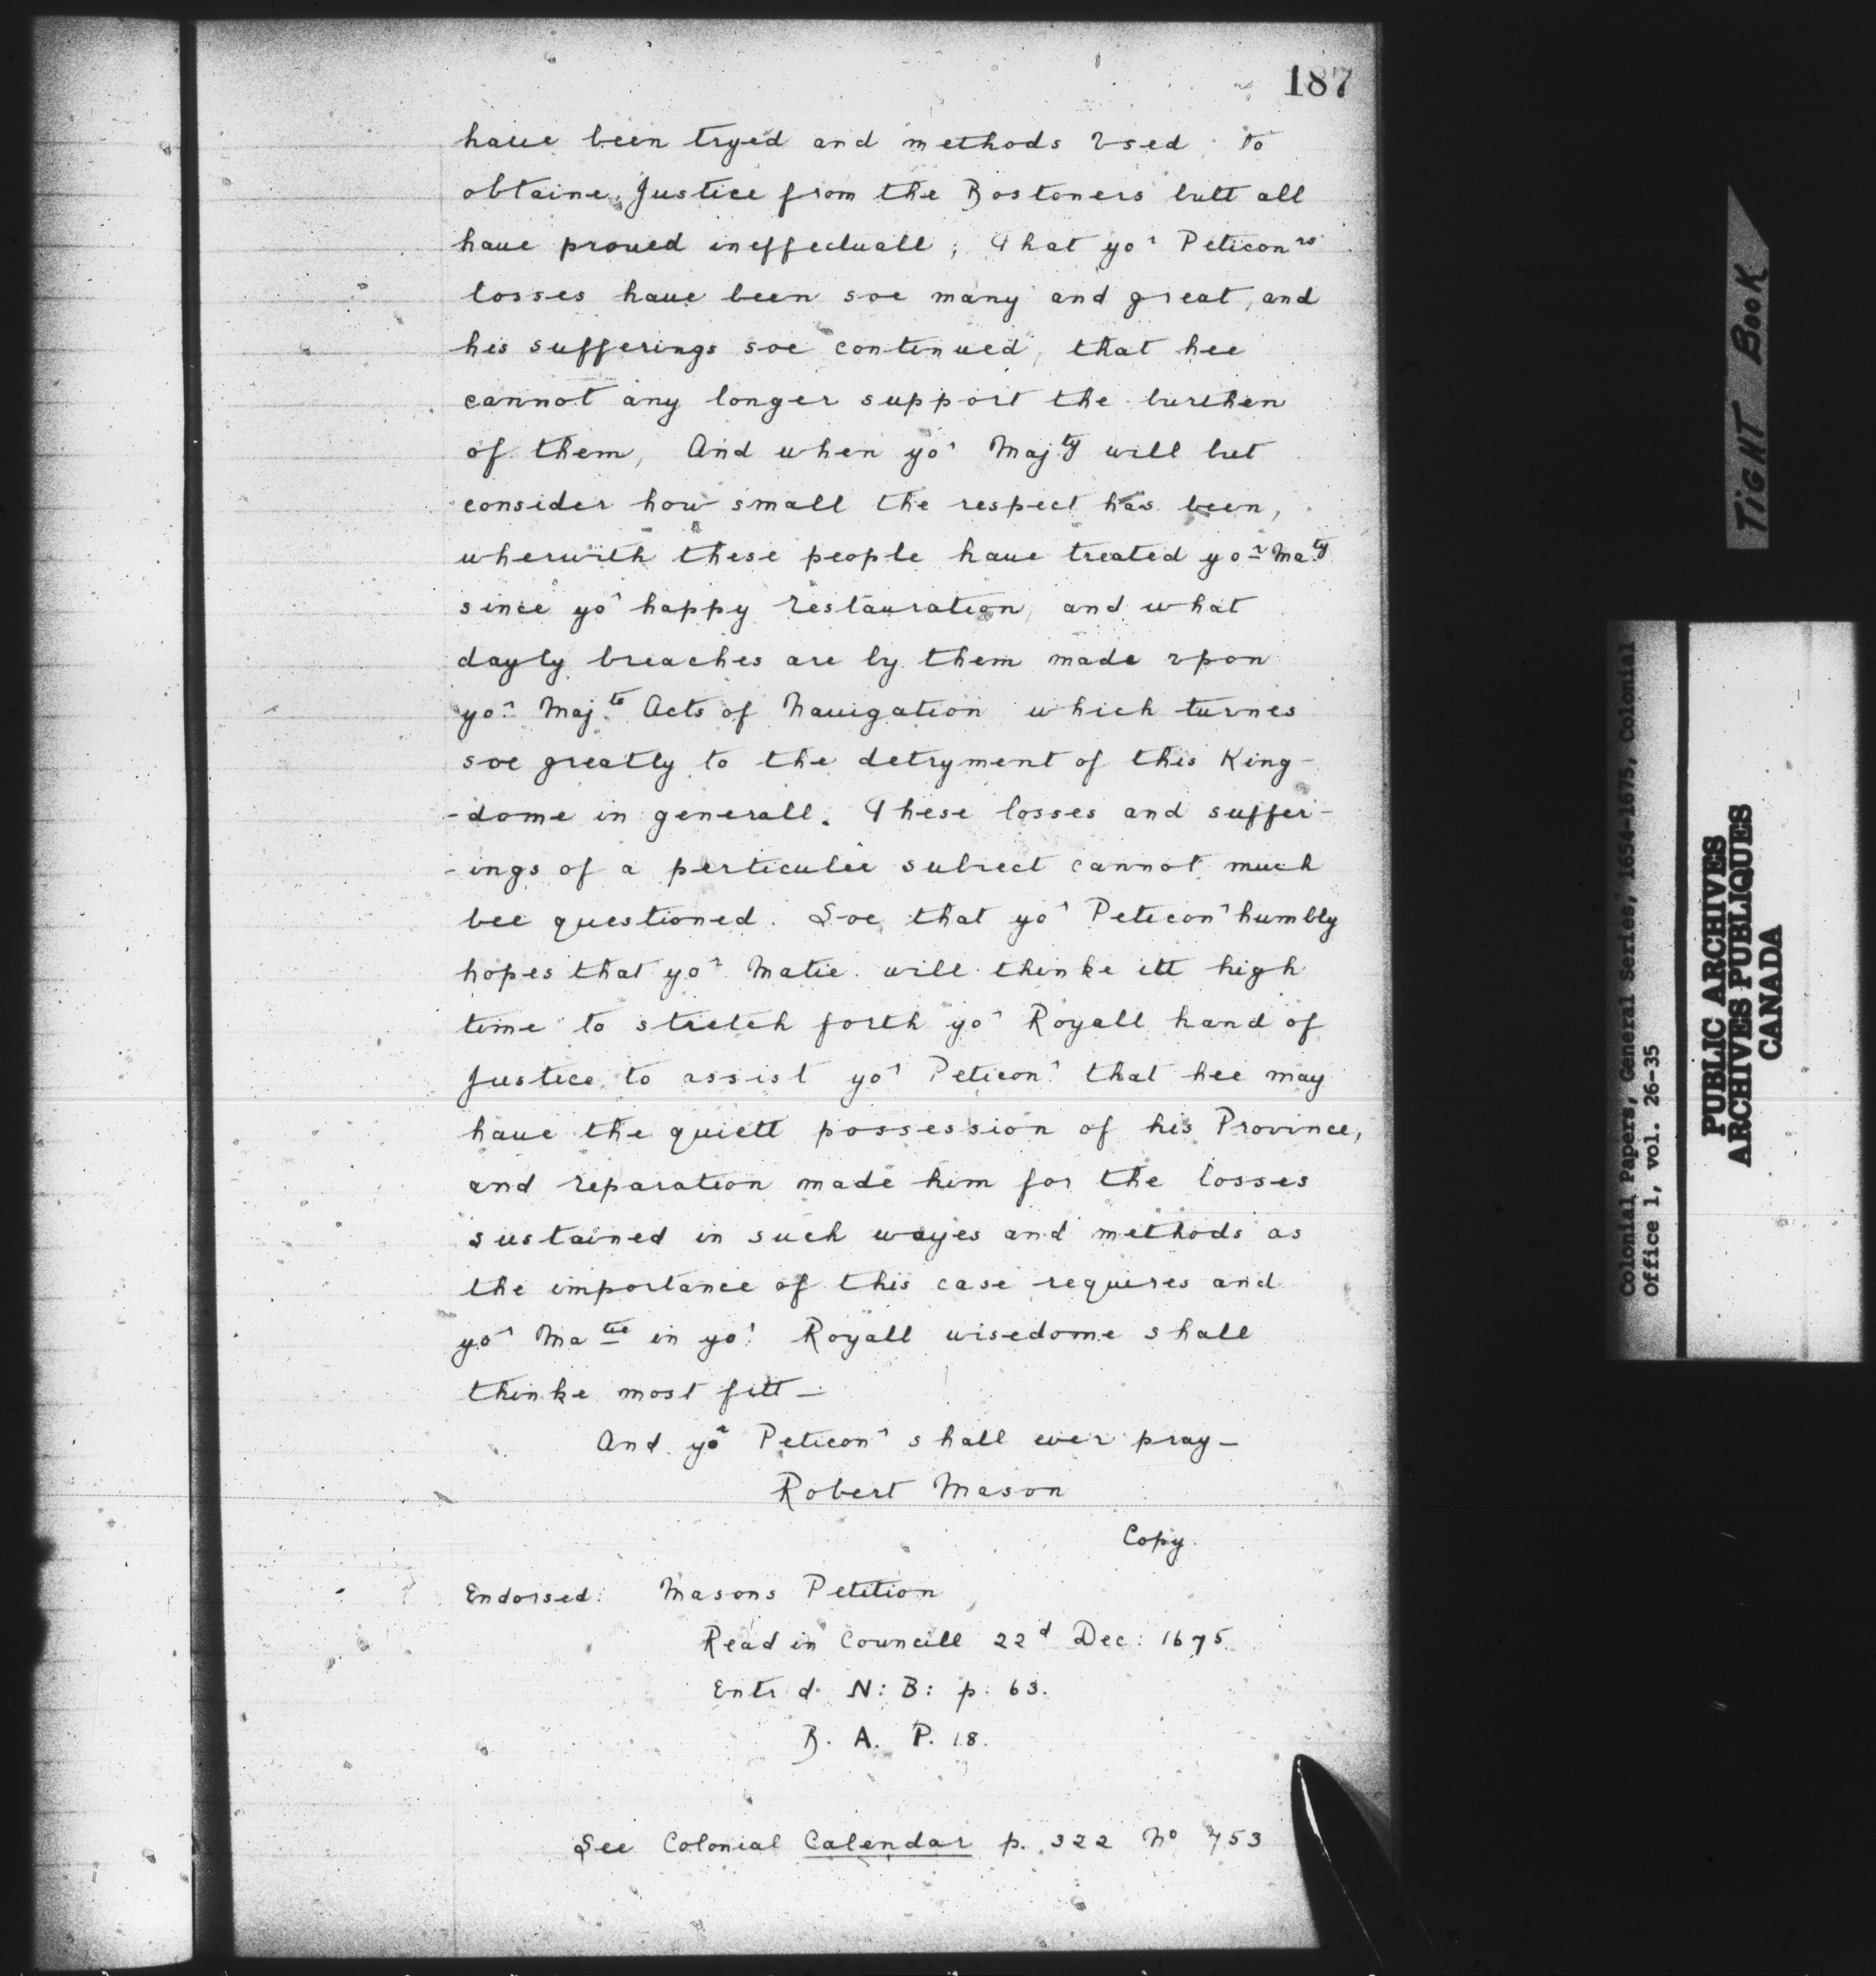 187
haue been tryed and methods vsed to
obtaine Justice from the Bostoners butt all
haue proued ineffectuall; That yoʳ Peticonʳˢ
losses haue been soe many and great, and
his sufferings soe continued, that hee
cannot any longer support the burthen
of them, And when yoʳ Majᵗʸ will but
consider how small the respect has been,
wherwith these people haue treated yoʳ Maᵗʸ
since yoʳ happy restauration, and what
dayly breaches are by them made vpon
yoʳ Majᵗˢ Acts of Nauigation which turnes
soe greatly to the detryment of this King-
-dome in generall. These losses and suffer-
-ings of a perticuler subiect cannot much
bee questioned. Soe that yoʳ Peticonʳ humbly
hopes that yoʳ Matie. will thinke itt high
time to stretch forth yoʳ Royall hand of
Justice to assist yoʳ Peticonʳ that hee may
haue the quiett possession of his Province,
and reparation made him for the losses
sustained in such wayes and methods as
the importance of this case requires and
yoʳ Maᵗⁱᵉ in yoʳ Royall wisedome shall
thinke most fitt—
And yoʳ Peticonʳ shall ever pray—
Robert Mason
Copy.
Endorsed: Masons Petition
Read in Councill 22ᵈ Dec: 1675.
Entrd. N: B: p. 63.
B. A. P. 18.
See Colonial Calendar p. 322 Nº 753
TIGHT BOOK
Colonial Papers, General Series, 1654-1675, Colonial
Office 1, vol. 26-35
PUBLIC ARCHIVES
ARCHIVES PUBLIQUES
CANADA